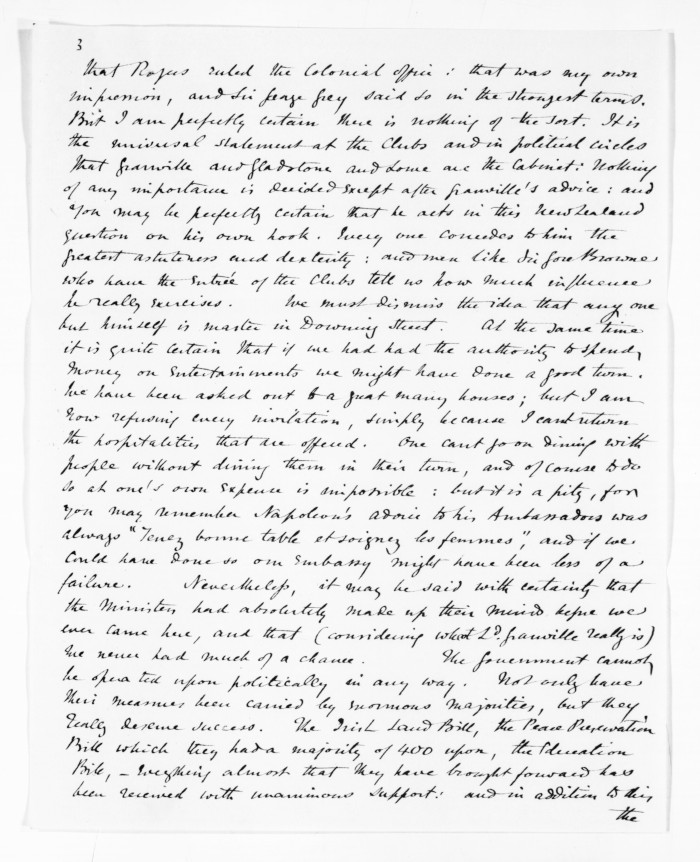 3
that Rogers ruled the Colonial Office : that was my own
impression, and Sir George Grey said so in the strongest terms.
But I am perfectly certain there is nothing of the sort. It is
the universal statement at the Clubs and in political circles
that Granville and Gladstone and Lowe are the Cabinet: Nothing
of any importance is decided except after Granville's advice : and
you may be perfectly certain that he acts in this New Zealand
question on his own hook. Every one concedes to him the
greatest astuteness and dexterity : and men like Sir Gore Browne
who have the Entrée of the Clubs tell us how much influence
he really exercises. We must dismiss the idea that any one
but himself is master in Downing Street. At the same time
it is quite certain that if we had had the authority to spend
money on Entertainments we might have done a good turn.
We have been asked out to a great many houses; but I am
now refusing every invitation, simply because I cant return
the hospitalities that are offered. One cant go on dining with
people without dining them in their turn, and of course to do
so at one's own expence is impossible : but it is a pity, for
you may remember Napoleon's advice to his Ambassadors was
always "Tenez bonne table et soignez les femmes", and if we
could have done so our Embassy might have been less of a
failure. Nevertheless, it may be said with certainty that
the Ministers had absolutely made up their minds before we
ever came here, and that (considering what Ld. Granville really is)
we never had much of a chance. The Government cannot
be operated upon politically in any way. Not only have
their measures been carried by enormous majorities, but they
really deserve success. The Irish Land Bill, the Peace Preservation
Bill which they had a majority of 400 upon, the Education
Bill, – everything almost that they have brought forward has
been received with unanimous support : and in addition to this
the